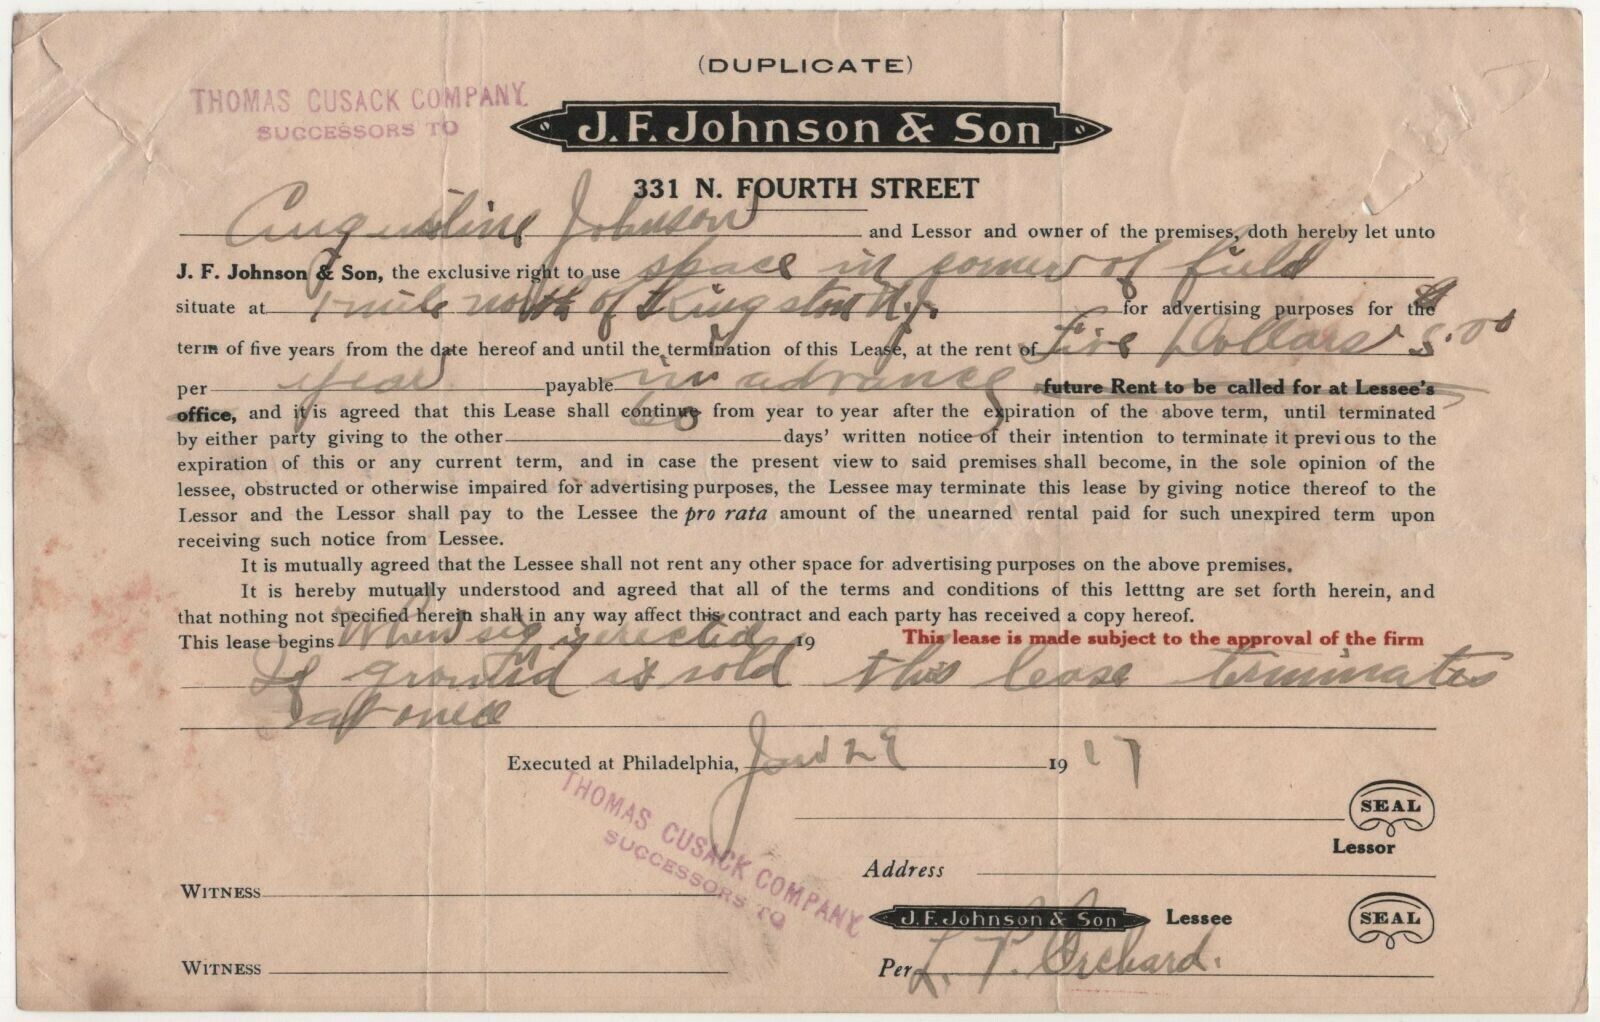 (DUPLICATE)
THOMAS CUSACK COMPANY
SUCCESSORS TO
J. F. Johnson & Son
331 N. FOURTH STREET
Augustine Johnson and Lessor and owner of the premises, doth hereby let unto
J. F. Johnson & Son, the exclusive right to use space in corner of field
situate at 1 mile north of Kingston N.J. for advertising purposes for the
term of five years from the date hereof and until the termination of this Lease, at the rent of Five Dollars 5.00
per year payable in advance future Rent to be called for at Lessee's
office, and it is agreed that this Lease shall continue from year to year after the expiration of the above term, until terminated
by either party giving to the other 60 days' written notice of their intention to terminate it previous to the
expiration of this or any current term, and in case the present view to said premises shall become, in the sole opinion of the
lessee, obstructed or otherwise impaired for advertising purposes, the Lessee may terminate this lease by giving notice thereof to the
Lessor and the Lessor shall pay to the Lessee the pro rata amount of the unearned rental paid for such unexpired term upon
receiving such notice from Lessee.
It is mutually agreed that the Lessee shall not rent any other space for advertising purposes on the above premises.
It is hereby mutually understood and agreed that all of the terms and conditions of this letttng are set forth herein, and
that nothing not specified herein shall in any way affect this contract and each party has received a copy hereof.
This lease begins When sign is erected 19 This lease is made subject to the approval of the firm
If ground is sold this lease terminates
at once
Executed at Philadelphia, Jan 29 1917
SEAL
Lessor
THOMAS CUSACK COMPANY
SUCCESSORS TO
Address
WITNESS
J. F. Johnson & Son Lessee SEAL
WITNESS
Per L. P. Orchard.